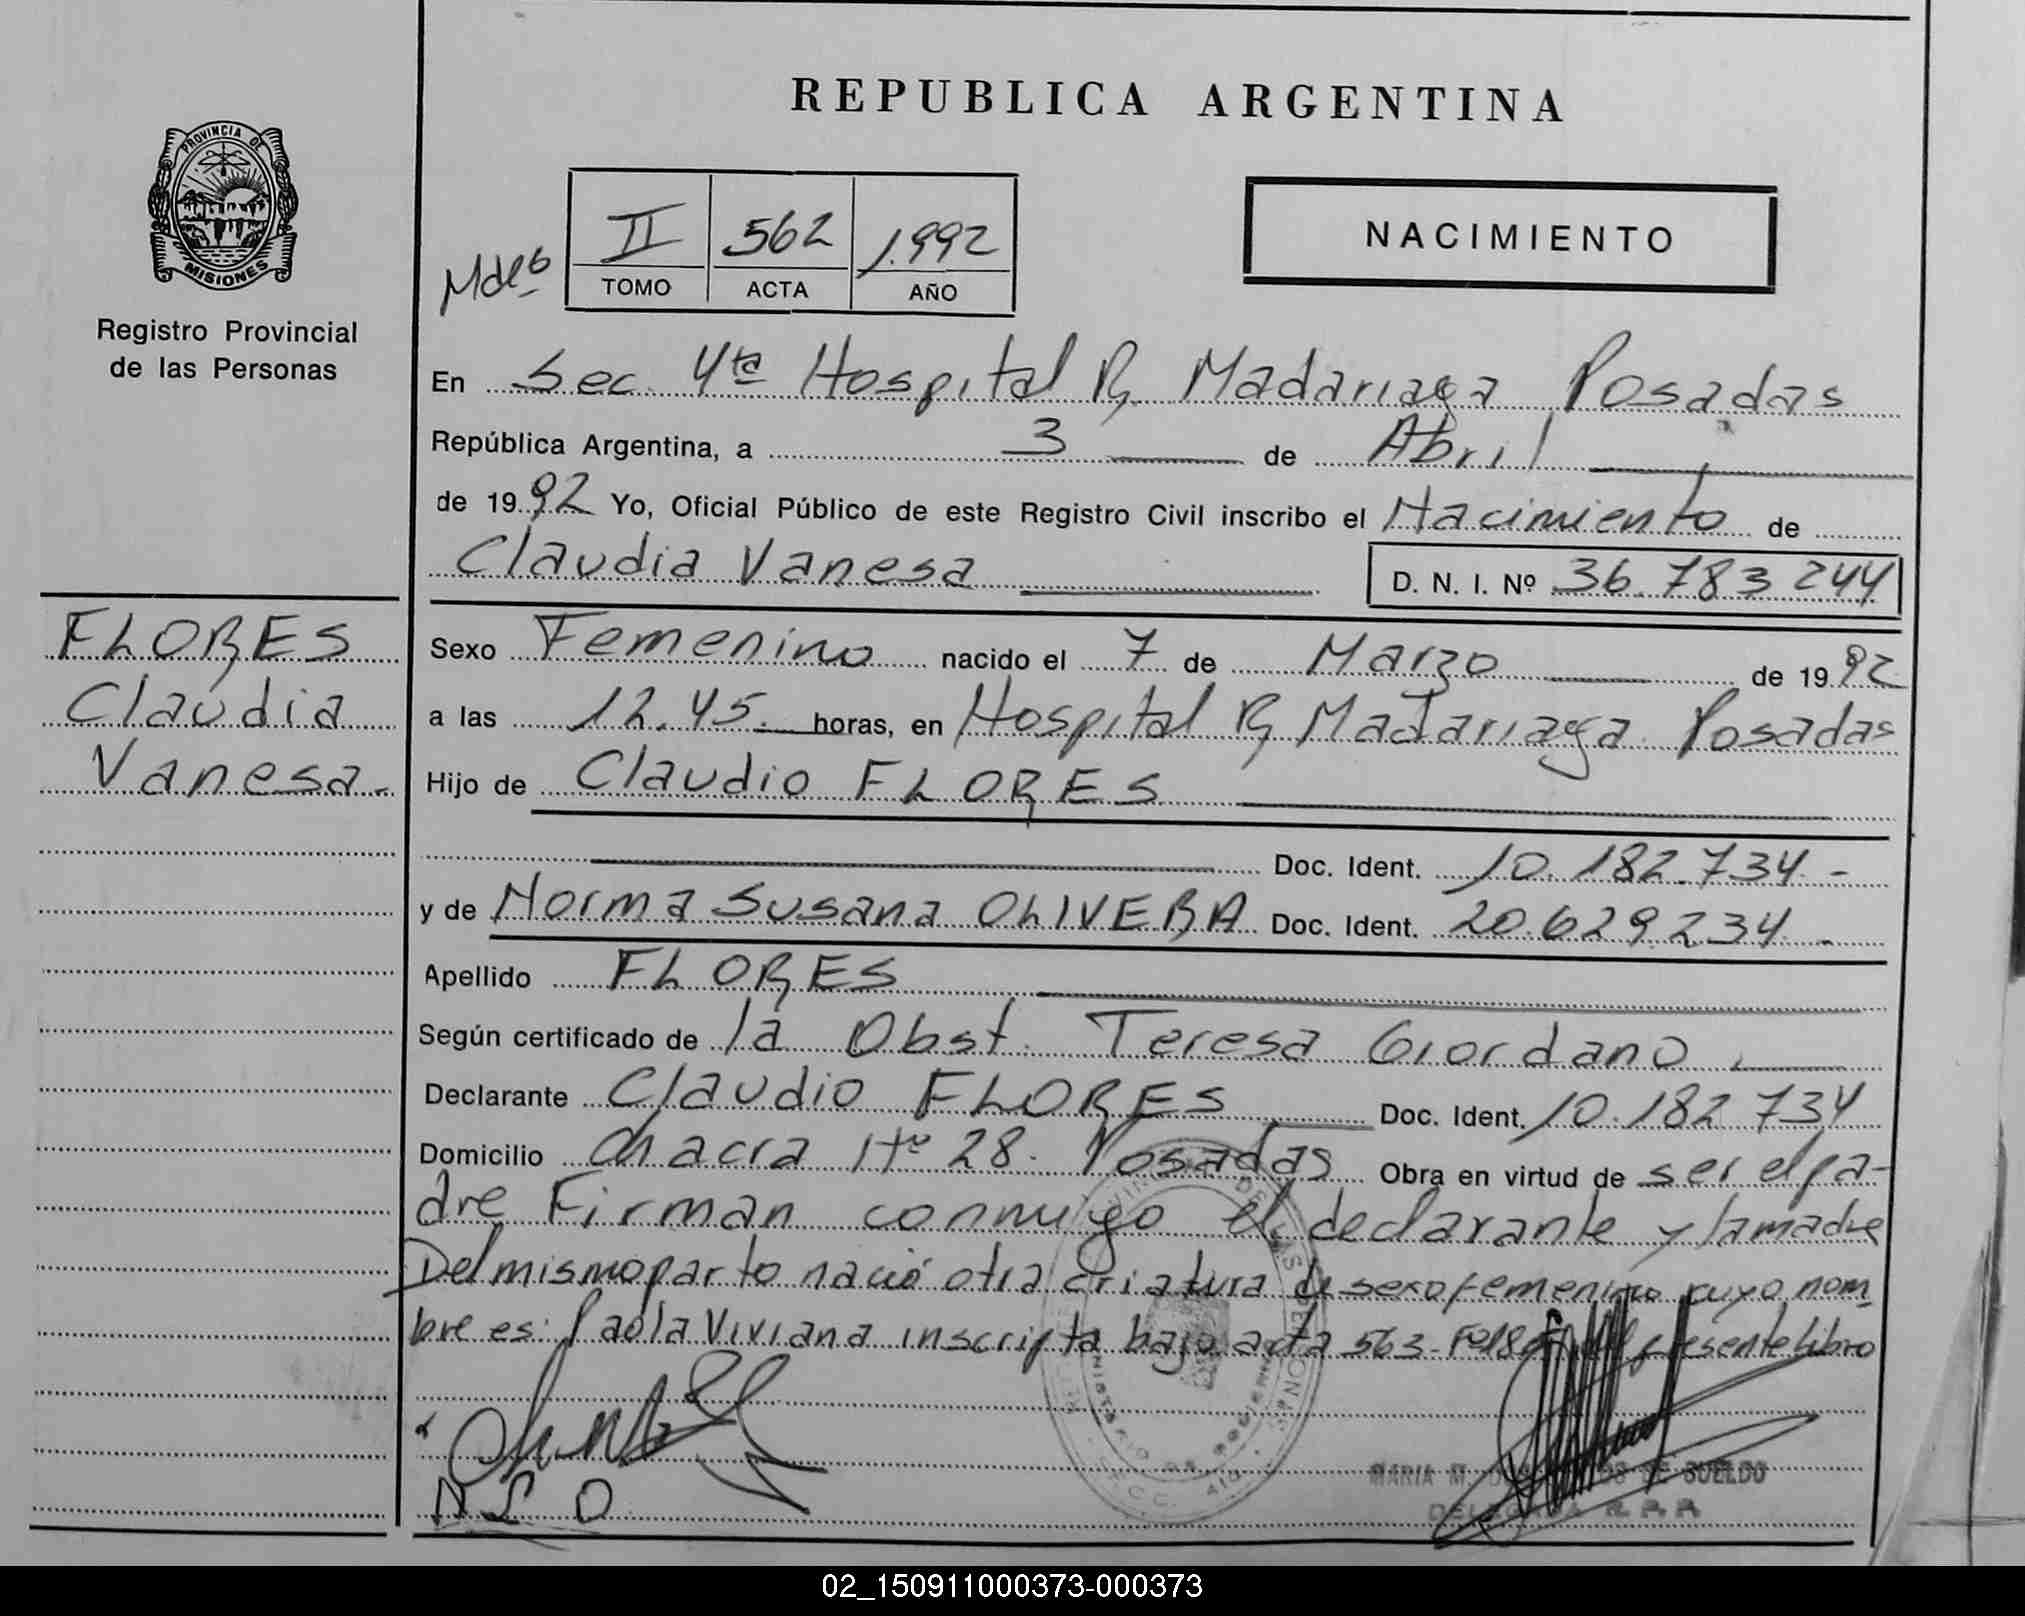 REPUBLICA ARGENTINA
PROVINCIA DE
MISIONES
Registro Provincial
de las Personas
II 562 1.992
TOMO ACTA AÑO
NACIMIENTO
En Sec. 4ta Hospital R. Madariaga Posadas
República Argentina, a 3 de Abril
de 1992 Yo, Oficial Público de este Registro Civil inscribo el Nacimiento de
Claudia Vanesa D. N. I. Nº 36.783 244
FLORES
Claudia
Vanesa.
Sexo Femenino nacido el 7 de Marzo de 1992
a las 12.45. horas, en Hospital R. Madariaga Posadas
Hijo de Claudio FLORES
Doc. Ident. 10.182.734.-
y de Norma Susana OLIVERA Doc. Ident. 20.629.234.-
Apellido FLORES
Según certificado de la Obst. Teresa Giordano.
Declarante Claudio FLORES Doc. Ident. 10.182 734
Domicilio Chacra Nº 28. Posadas Obra en virtud de ser el pa-
dre Firman conmigo el declarante y la madre
Del mismo parto nació otra criatura de sexo femenino cuyo nom-
bre es: Paola Viviana inscripta bajo acta 563- presente Libro
MARIA M. DE SUELDO
R.P.P.
02_150911000373-000373